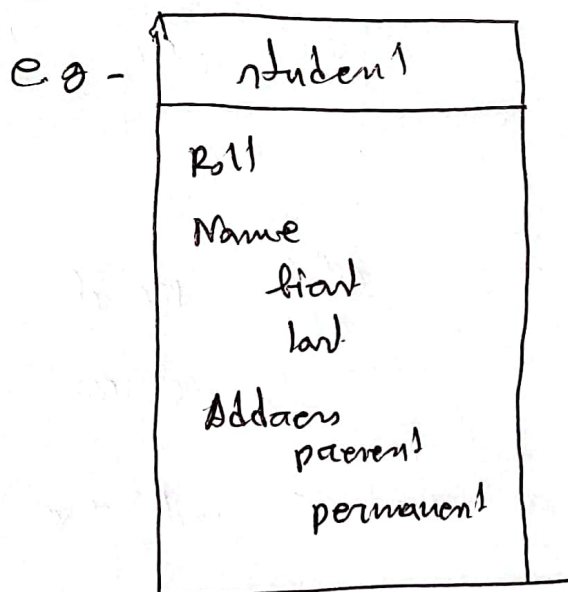 e.g- student
Roll
Name
first
last
Address
present
permanent